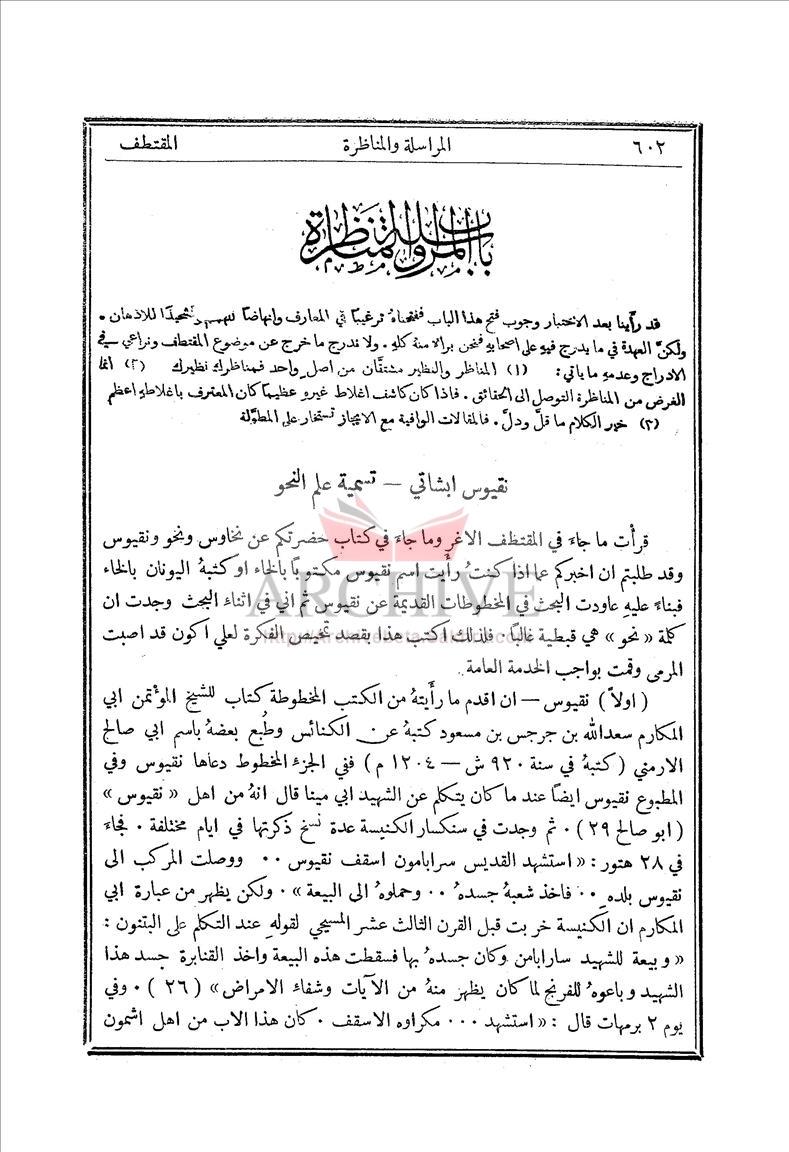 ٦٠٢ المراسلة والمناظرة المقتطف
باب المراسلة والمناظرة
قد رأينا بعد الاختبار وجوب فتح هذا الباب ففتحناهُ ترغيبًا في المعارف وانهاضًا للهمم وتشحيذًا للاذهان ٠
ولكنَّ العهدة في ما يدرج فيهِ على اصحابهِ فنحن برالا منهُ كلهِ ٠ ولا ندرج ما خرج عن موضوع المقتطف ونراعي في
الادراج وعدمهِ ما ياتي : (١) المناظر والنظير مشتقَّان من اصلٍ واحد فمناظرك نظيرك (٢) انما
الغرض من المناظرة التوصل الى الحقائق ٠ فاذا كان كاشف اغلاط غيرهِ عظيمًا كان المعترف باغلاطهِ اعظم
(٣) خير الكلام ما قلَّ ودلَّ ٠ فالمقالات الوافية مع الايجاز تستخار على المطوَّلة
نقيوس ابشاتي — تسمية علم النحو
قرأت ما جاء في المقتظف الاغر وما جاء في كتاب حضرتكم عن نخاوس ونحو ونقيوس
وقد طلبتم ان اخبركم عما اذا كنتُ رأيت اسم نقيوس مكتوبًا بالخاء او كتبهُ اليونان بالخاء
فبناء عليهِ عاودت البحث في المخطوطات القديمة عن نقيوس ثم اني في اثناء البحث وجدت ان
كلمة « نحو » هي قبطية غالبًا ٠ فلذلك اكتب هذا بقصد تمحيص الفكرة لعلي اكون قد اصبت
المرمى وقمت بواجب الخدمة العامة
( اولاً ) نقيوس — ان اقدم ما رأيتهُ من الكتب المخطوطة كتاب للشيخ المؤتمن ابي
المكارم سعدالله بن جرجس بن مسعود كتبهُ عن الكنائس وطُبع بعضهُ باسم ابي صالح
الارمني ( كتبهُ في سنة ٩٢٠ ش — ١٢٠٤ م ) ففي الجزء المخطوط دعاها نقيوس وفي
المطبوع نقيوس ايضًا عند ما كان يتكلم عن الشهيد ابي مينا قال انهُ من اهل « نقيوس »
( ابو صالح ٢٩ ) ٠ ثم وجدت في سنكسار الكنيسة عدة نسخ ذكرتها في ايام مختلفة ٠ فجاء
في ٢٨ هتور : « استشهد القديس سرابامون اسقف نقيوس ٠٠ ووصلت المركب الى
نقيوس بلدهِ ٠٠ فاخذ شعبهُ جسدهُ ٠٠ وحملوهُ الى البيعة » ٠ ولكن يظهر من عبارة ابي
المكارم ان الكنيسة خربت قبل القرن الثالث عشر المسيحي لقولهِ عند التكلم على البتنون :
« وبيعة للشهيد سارابامن وكان جسدهُ بها فسقطت هذه البيعة واخذ القنابرة جسد هذا
الشهيد وباعوهُ للفرنج لما كان يظهر منهُ من الآيات وشفاء الامراض » ( ٢٦ ) ٠ وفي
يوم ٢ برمهات قال : « استشهد ٠٠٠ مكراوه الاسقف ٠ كان هذا الاب من اهل اشمون
ARCHIVE